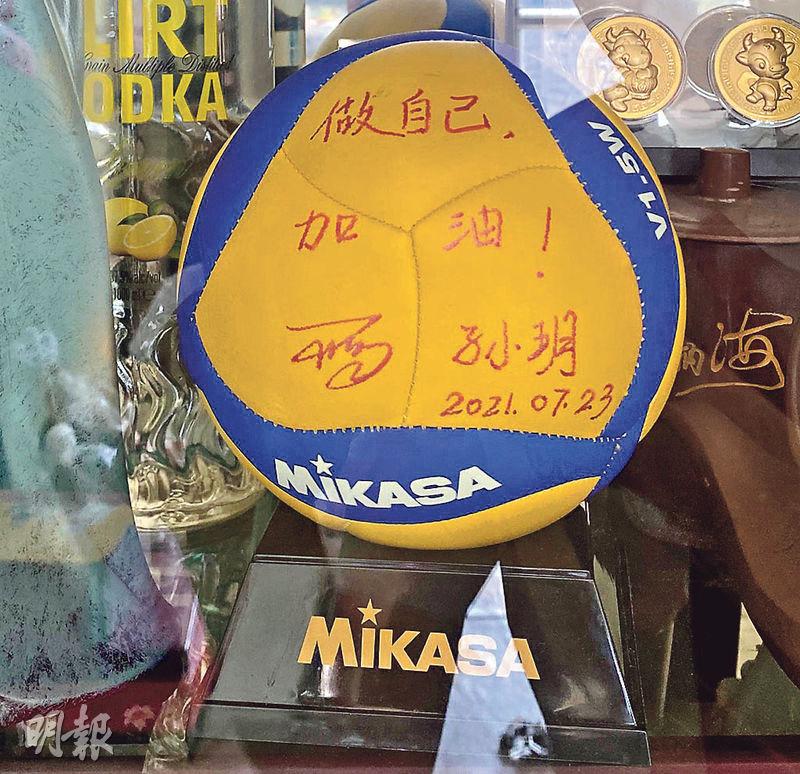 LIRT
Grain Multiple Distilled
ODKA
做自己,
加油!
孙小玥
2021.07.23
V1-5W
MIKASA
海
MIKASA
明報